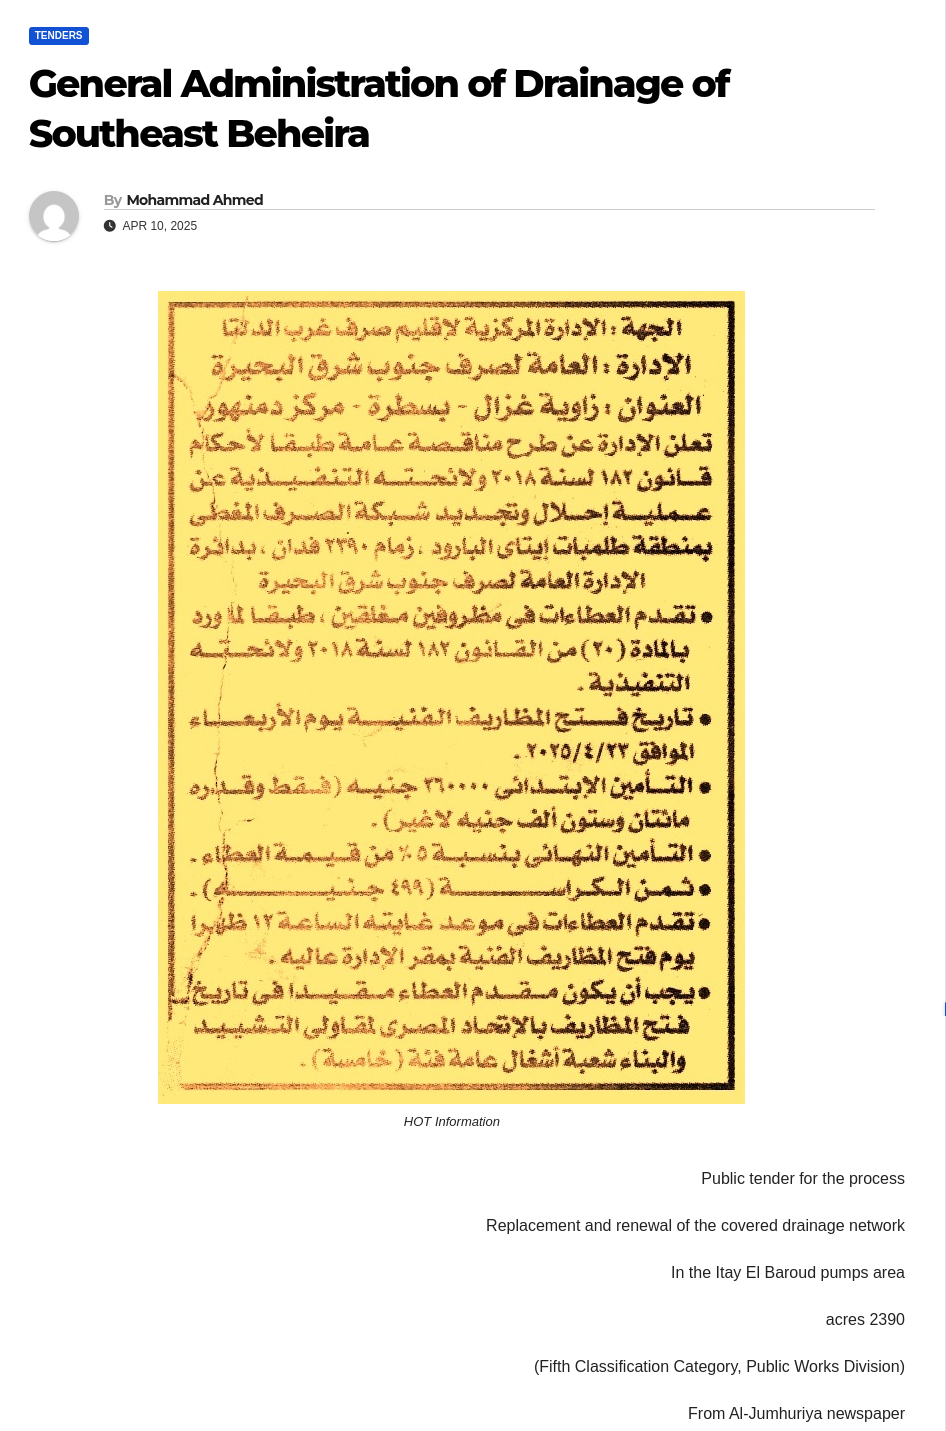 TENDERS
General Administration of Drainage of
Southeast Beheira
By Mohammad Ahmed
APR 10, 2025
الجهة : الإدارة المركزية لإقليم صرف غرب الدلتا
الإدارة : العامة لصرف جنوب شرق البحيرة
العنوان : زاوية غزال - بسطرة - مركز دمنهور
تعلن الإدارة عن طرح مناقصة عامة طبقا لأحكام
قانون ١٨٢ لسنة ٢٠١٨ ولائحته التنفيذية عن
عملية إحلال وتجديد شبكة الصرف المغطى
بمنطقة طلمبات إيتاى البارود ، زمام ٢٣٩٠ فدان ، بدائرة
الإدارة العامة لصرف جنوب شرق البحيرة
● تقدم العطاءات فى مظروفين مغلقين ، طبقا لما ورد
بالمادة (٢٠) من القانون ١٨٢ لسنة ٢٠١٨ ولائحته
التنفيذية .
● تاريخ فتح المظاريف الفنية يوم الأربعاء
الموافق ٢٠٢٥/٤/٢٣ .
● التأمين الإبتدائى ٢٦٠٠٠٠ جنيه (فقط وقدره
مائتان وستون ألف جنيه لاغير) .
● التأمين النهائى بنسبة ٥٪ من قيمة العطاء .
● ثمن الكراسة (٤٩٩ جنيه) .
● تقدم العطاءات فى موعد غايته الساعة ١٢ ظهرا
يوم فتح المظاريف الفنية بمقر الإدارة عاليه .
● يجب أن يكون مقدم العطاء مقيدا فى تاريخ
فتح المظاريف بالإتحاد المصرى لمقاولى التشييد
والبناء شعبة أشغال عامة فئة (خامسة) .
HOT Information
Public tender for the process
Replacement and renewal of the covered drainage network
In the Itay El Baroud pumps area
acres 2390
(Fifth Classification Category, Public Works Division)
From Al-Jumhuriya newspaper